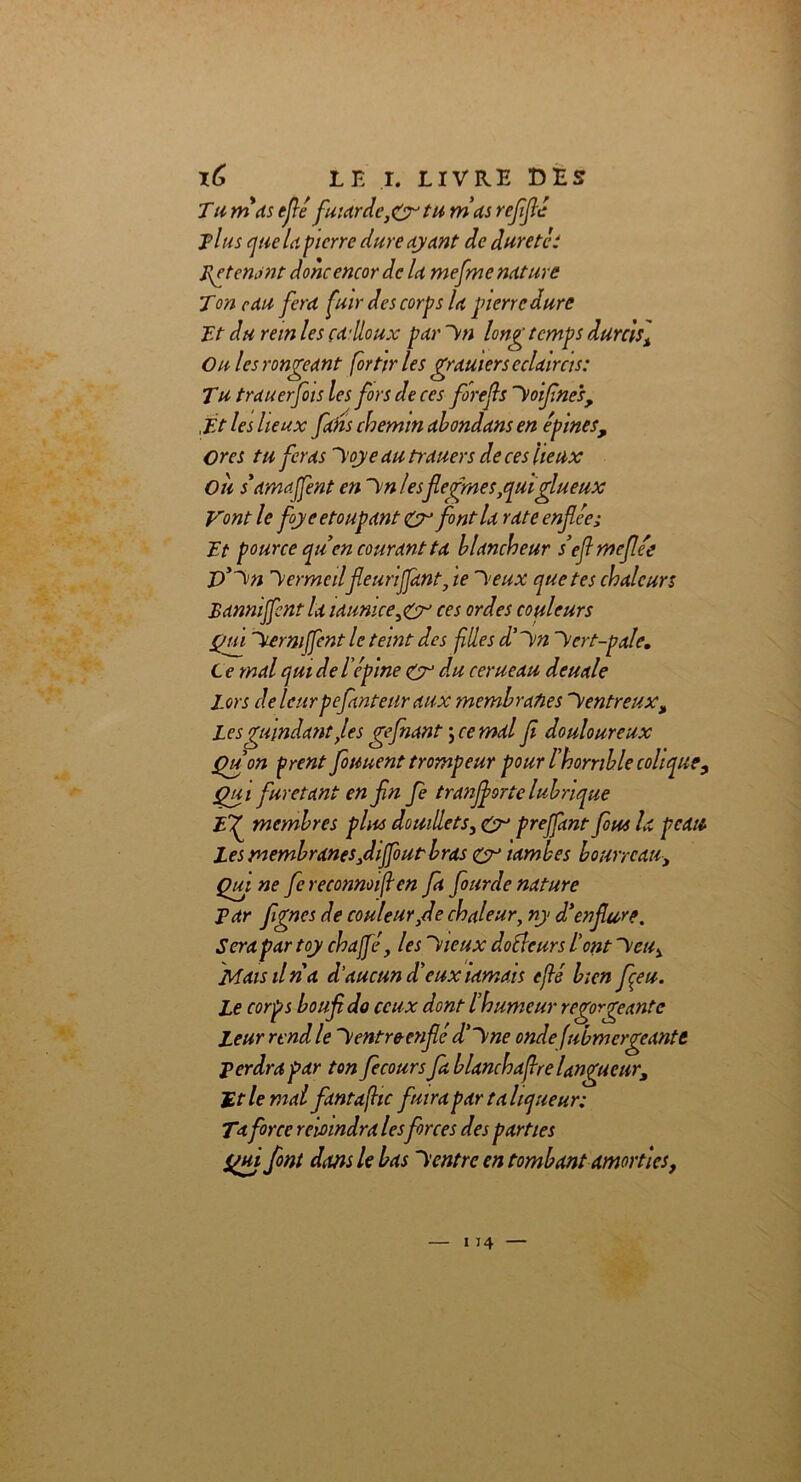 16 LE I. LIVRE DES
Tu m'as esté fuiarde, & tu m'as resisté
Plus que la pierre dure ayant de dureté:
Retenant donc encor de la mesme nature
Ton eau fera fuir des corps la pierre dure
Et du rein les cailloux par vn long temps durcis,
Ou les rongeant sortir les grauiers eclaircis:
Tu trauersois les fors de ces forests voisines,
Et les lieux sans chemin abondans en épines,
Ores tu feras voye au trauers de ces lieux
Où s'amassent en vn les flegmes, qui glueux
Vont le foye etoupant & font la rate enflée;
Et pource qu'en courant ta blancheur s'est meslée
D'vn vermeil fleurissant, ie veux que tes chaleurs
Bannissent la iaunice, & ces ordes couleurs
Qui vernissent le teint des filles d'vn vert-pale.
Ce mal qui de l'épine & du cerueau deuale
Lors de leur pesanteur aux membranes ventreux,
Les guindant, les gesnant; ce mal si douloureux
Qu'on prent souuent trompeur pour l'horrible colique,
Qui furetant en fin se transporte lubrique
Es membres plus douillets, & pressant sous la peau
Les membranes, dissout bras & iambes bourreau,
Qui ne se reconnoist en sa sourde nature
Par signes de couleur, de chaleur, ny d'enflure.
Sera par toy chassé, les vieux docteurs l'ont veu,
Mais il n'a d'aucun d'eux iamais esté bien sçeu.
Le corps boufi de ceux dont l'humeur regorgeante
Leur rend le ventre enflé d'vne onde submergeante
Perdra par ton secours sa blanchastre langueur,
Et le mal fantastic fuira par ta liqueur:
Ta force reioindra les forces des parties
Qui sont dans le bas ventre en tombant amorties,
— 114 —